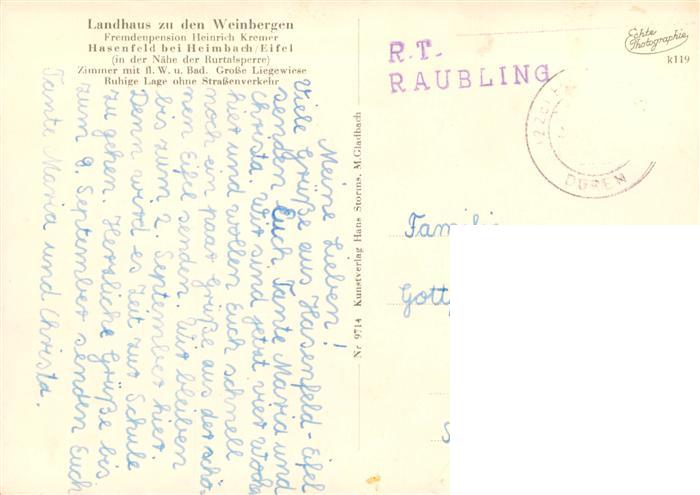 Landhaus zu den Weinbergen
Fremdenpension Heinrich Kremer
Hasenfeld bei Heimbach/Eifel
(in der Nähe der Rurtalsperre)
Zimmer mit fl. W. u. Bad. Große Liegewiese
Ruhige Lage ohne Straßenverkehr
Meine Lieben!
Viele Grüße aus Hasenfeld-Eifel
senden Euch Tante Maria und
Christa. Wir sind jetzt vier Woch
hier und wollen Euch schnell
noch ein paar Grüße aus der schö-
nen Eifel senden. Wir bleiben
bis zum 2. September hier.
Denn wird es Zeit zur Schule
zu gehen. Herzliche Grüße bis
zum 9. September senden Euch
Tante Maria und Christa.
Nr. 9714 Kunstverlag Hans Storms, M.Gladbach
R.T.
RAUBLING
Echte
Photographie
k119
DÜREN
Familie